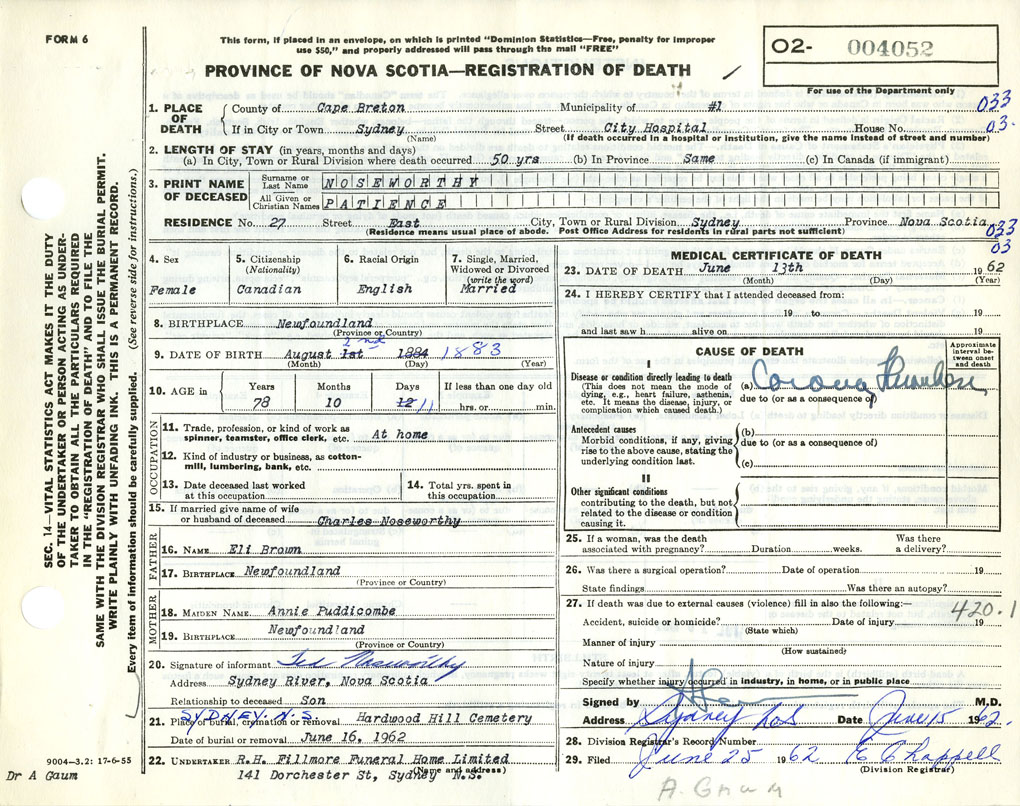 FORM 6
This form, if placed in an envelope, on which is printed "Dominion Statistics—Free, penalty for improper
use $50," and properly addressed will pass through the mail "FREE"
PROVINCE OF NOVA SCOTIA—REGISTRATION OF DEATH
O2- 004052
For use of the Department only
SEC. 14—VITAL STATISTICS ACT MAKES IT THE DUTY
OF THE UNDERTAKER OR PERSON ACTING AS UNDER-
TAKER TO OBTAIN ALL THE PARTICULARS REQUIRED
IN THE "REGISTRATION OF DEATH" AND TO FILE THE
SAME WITH THE DIVISION REGISTRAR WHO SHALL ISSUE THE BURIAL PERMIT.
WRITE PLAINLY WITH UNFADING INK. THIS IS A PERMANENT RECORD.
Every item of information should be carefully supplied. (See reverse side for instructions.)
1. PLACE OF DEATH
County of Cape Breton Municipality of #1 033
If in City or Town Sydney Street City Hospital House No. 03.
(Name) (If death occurred in a hospital or institution, give the name instead of street and number)
2. LENGTH OF STAY (in years, months and days)
(a) In City, Town or Rural Division where death occurred 50 yrs (b) In Province Same (c) In Canada (if immigrant)
3. PRINT NAME OF DECEASED
Surname or Last Name NOSEWORTHY
All Given or Christian Names PATIENCE
RESIDENCE No. 27 Street East City, Town or Rural Division Sydney Province Nova Scotia 033
(Residence means usual place of abode. Post Office Address for residents in rural parts not sufficient) 03
4. Sex
Female
5. Citizenship
(Nationality)
Canadian
6. Racial Origin
English
7. Single, Married,
Widowed or Divorced
(write the word)
Married
8. BIRTHPLACE Newfoundland
(Province or Country)
9. DATE OF BIRTH August 1st 2nd 1884 1883
(Month) (Day) (Year)
10. AGE in
Years Months Days If less than one day old
78 10 12 11 hrs. or min.
OCCUPATION
11. Trade, profession, or kind of work as
spinner, teamster, office clerk, etc. At home
12. Kind of industry or business, as cotton-
mill, lumbering, bank, etc.
13. Date deceased last worked
at this occupation
14. Total yrs. spent in
this occupation
15. If married give name of wife
or husband of deceased Charles Noseworthy
FATHER
16. NAME Eli Brown
17. BIRTHPLACE Newfoundland
(Province or Country)
MOTHER
18. MAIDEN NAME Annie Puddicombe
19. BIRTHPLACE Newfoundland
(Province or Country)
20. Signature of informant Ted Noseworthy
Address Sydney River, Nova Scotia
Relationship to deceased Son
SYDNEY. N.S.
21. Place of burial, cremation or removal Hardwood Hill Cemetery
Date of burial or removal June 16, 1962
22. UNDERTAKER R.H. Fillmore Funeral Home Limited
(Name and address)
141 Dorchester St, Sydney N.S.
9004—3.2: 17-6-55
Dr A Gaum
MEDICAL CERTIFICATE OF DEATH
23. DATE OF DEATH June 13th 1962
(Month) (Day) (Year)
24. I HEREBY CERTIFY that I attended deceased from:
19 to 19
and last saw h alive on 19
CAUSE OF DEATH
Approximate
interval be-
tween onset
and death
I
Disease or condition directly leading to death
(This does not mean the mode of
dying, e.g., heart failure, asthenia,
etc. It means the disease, injury, or
complication which caused death.)
(a)
due to (or as a consequence of)
Antecedent causes
Morbid conditions, if any, giving
rise to the above cause, stating the
underlying condition last.
(b)
due to (or as a consequence of)
(c)
II
Other significant conditions
contributing to the death, but not
related to the disease or condition
causing it.
25. If a woman, was the death
associated with pregnancy? Duration weeks. Was there
a delivery?
26. Was there a surgical operation? Date of operation 19
State findings Was there an autopsy?
27. If death was due to external causes (violence) fill in also the following:— 420.1
Accident, suicide or homicide? Date of injury 19
(State which)
Manner of injury
(How sustained)
Nature of injury
Specify whether injury occurred in industry, in home, or in public place
Signed by M.D.
Address Sydney Date June 15 1962.
28. Division Registrar's Record Number
29. Filed June 25 1962 E Chappell
(Division Registrar)
A. Gaum